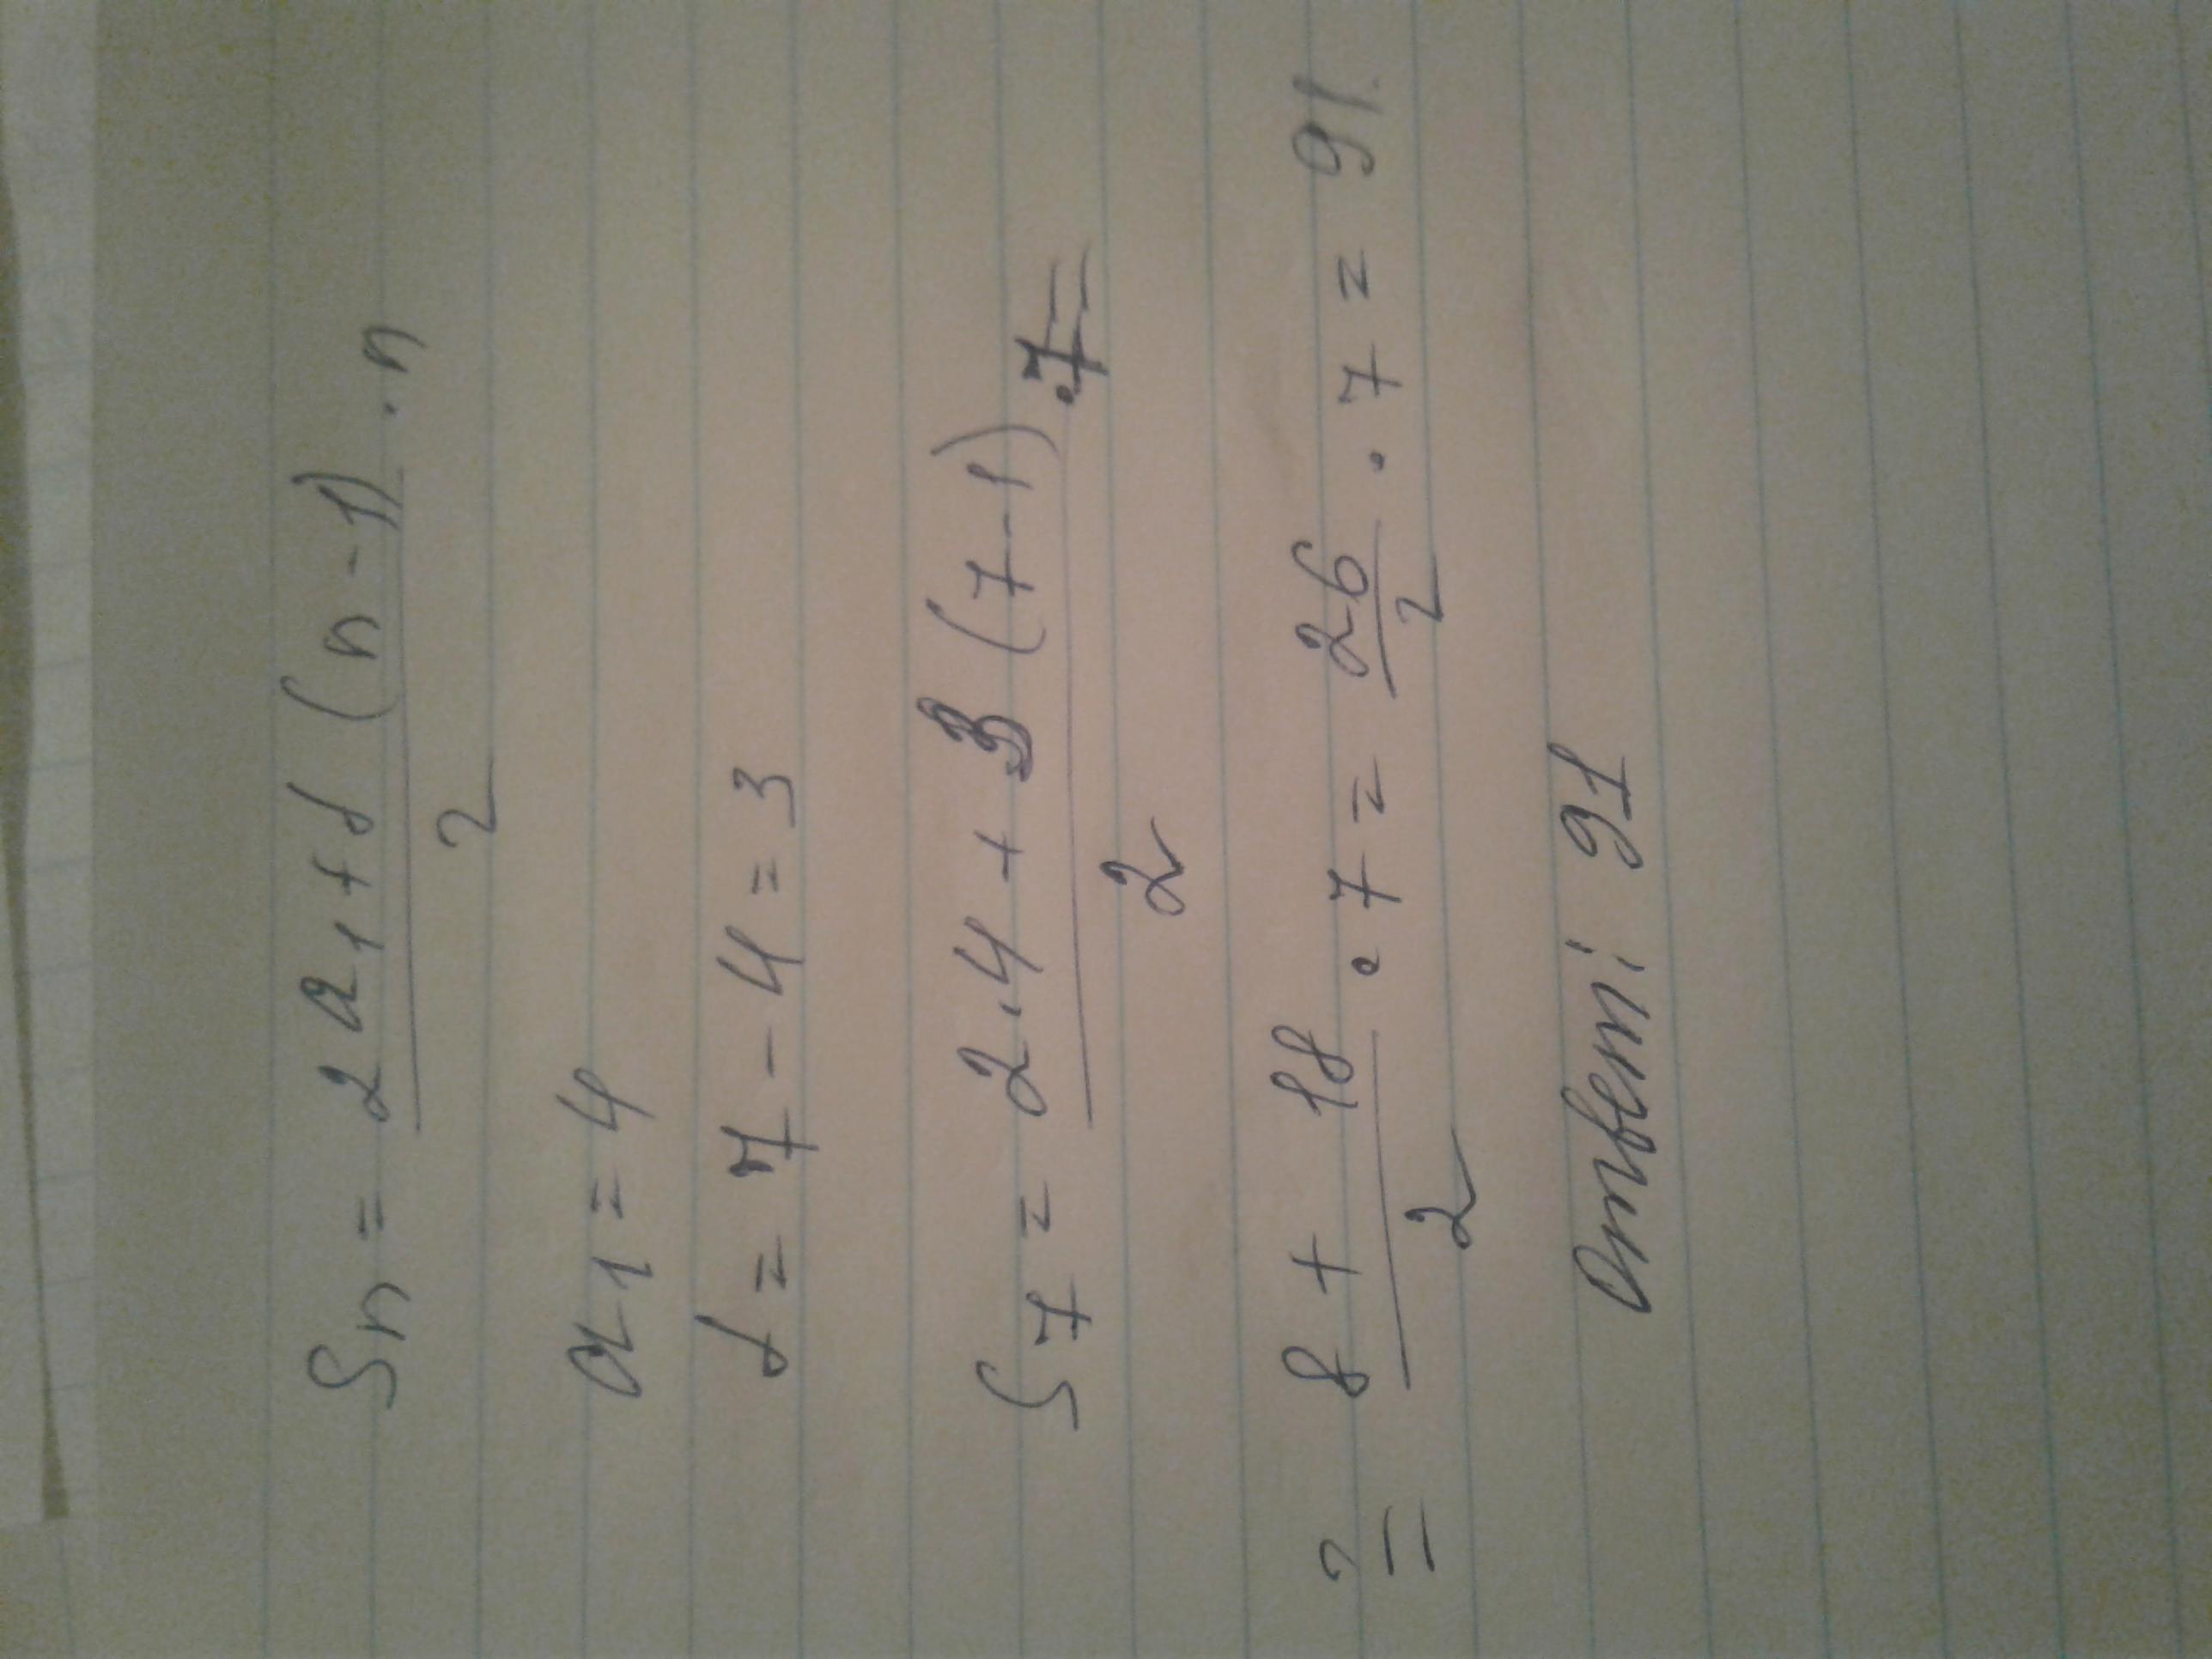 Sn = (2a₁+d(n-1))/2 · n
a₁ = 4
d = 7 - 4 = 3
S₇ = (2·4 + 3(7-1))/2 · 7 =
= (8 + 18)/2 · 7 = 26/2 · 7 = 91.
Ответ: 91